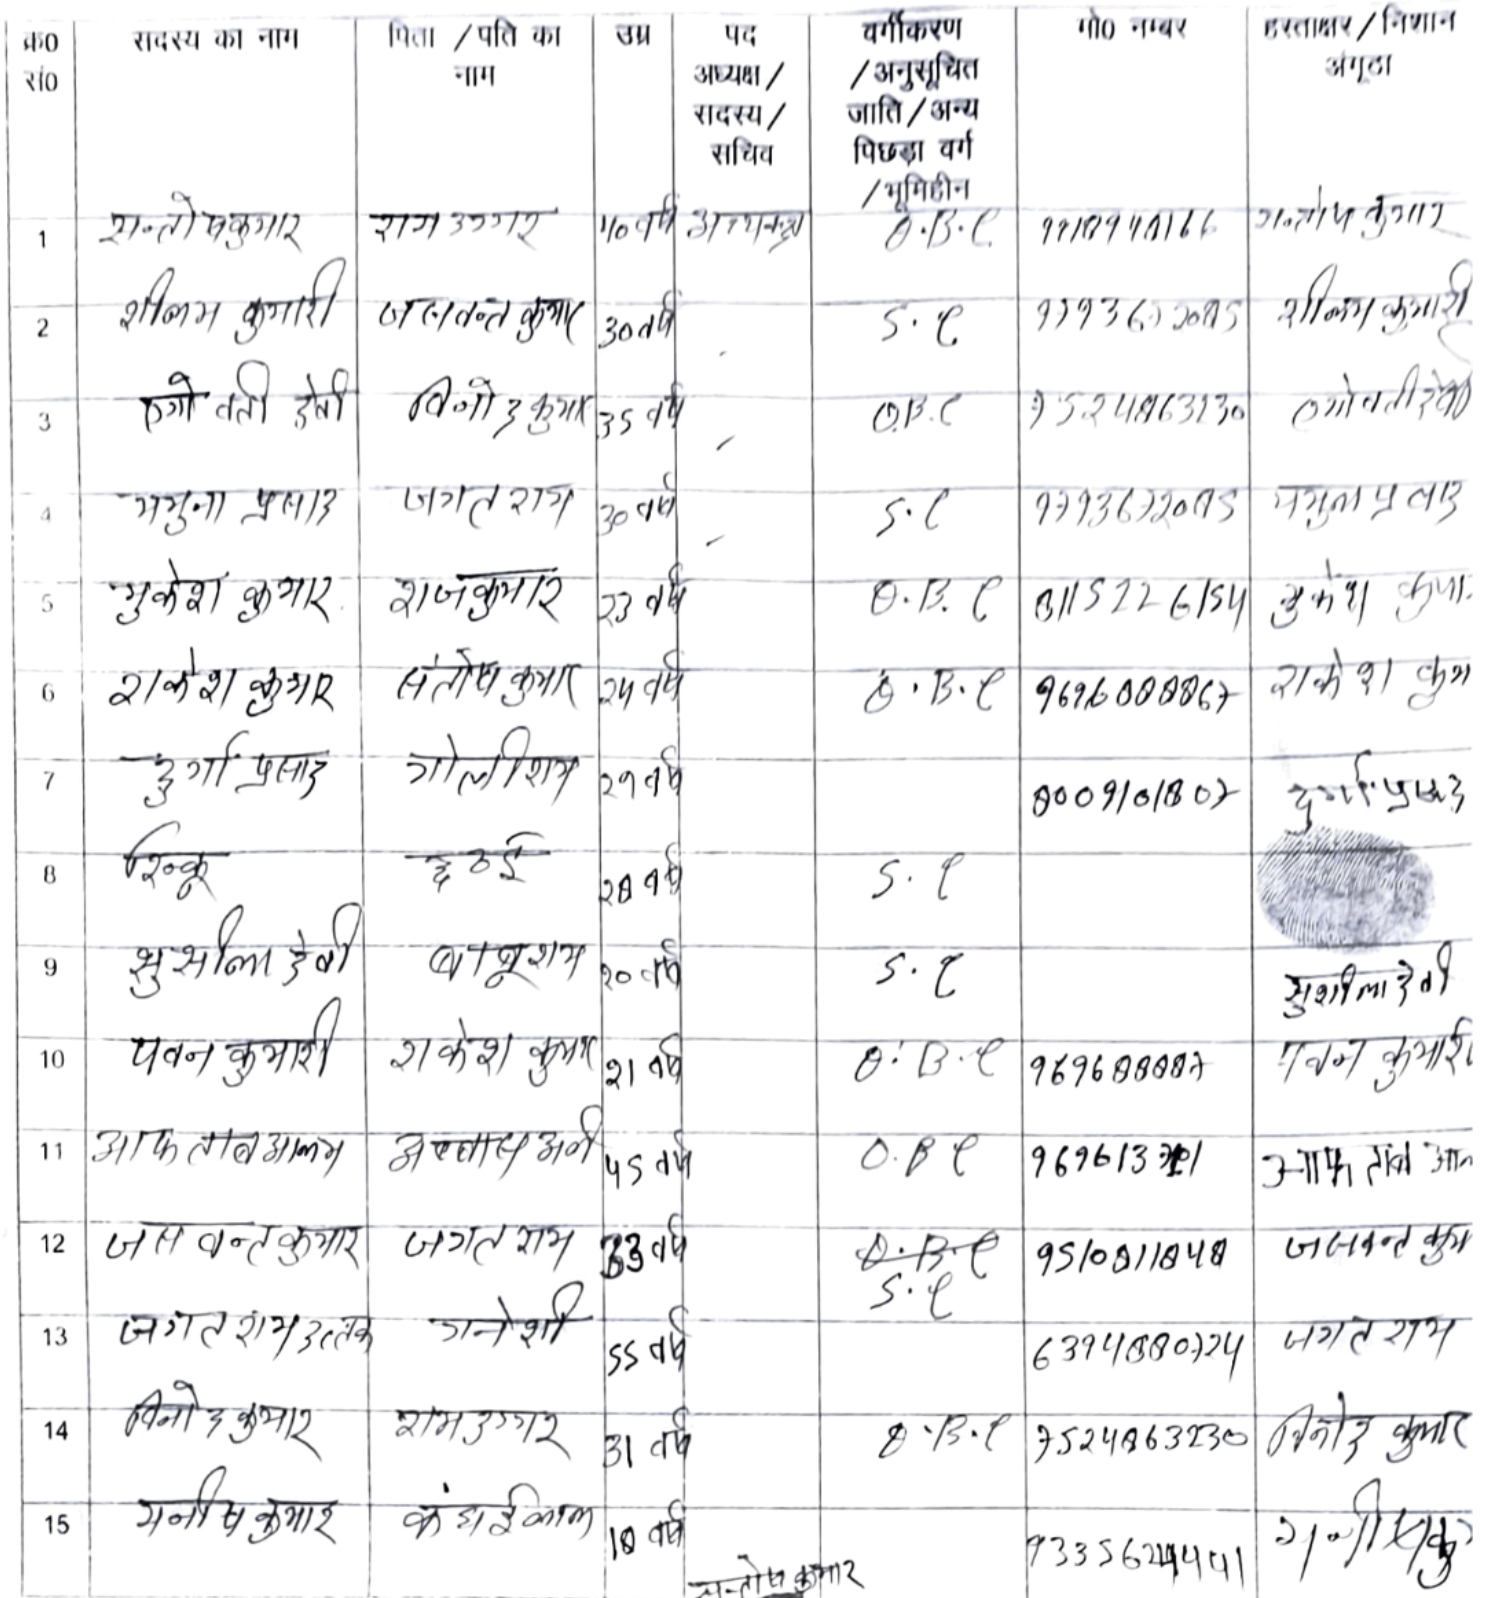 क्र0 सं0 सदस्य का नाम पिता /पति का नाम उम्र पद अध्यक्ष/ सदस्य/ सचिव वर्गीकरण /अनुसूचित जाति/अन्य पिछड़ा वर्ग /भूमिहीन मो0 नम्बर हस्ताक्षर/निशान अंगूठा
1 सन्तोषकुमार राम उजागर 40 वर्ष अध्यक्ष O.B.C सन्तोष कुमार
2 शीलम कुमारी जसवन्त कुमार 30 वर्ष S.C 9793672085 शीलम कुमारी
3 देवी विनोद कुमार 35 वर्ष O.B.C 7524863230
4 जमुना प्रसाद जगत राम 30 वर्ष S.C 9793672085 जमुना प्रसाद
5 मुकेश कुमार राजकुमार 23 वर्ष O.B.C 8115226154 मुकेश कुमा
6 राकेश कुमार संतोष कुमार 24 वर्ष O.B.C 9696088867 राकेश कुम
7 दुर्गा प्रसाद मोलीराम 29 वर्ष 8009101807 दुर्गा प्रसाद
8 रिन्कू छ ठई 28 वर्ष S.C
9 सुसीला देवी बाबूराम 20 वर्ष S.C सुशीला देवी
10 पवन कुमारी राकेश कुमार 21 वर्ष O.B.C 969688887 पवन कुमारी
11 आफताब आलम अब्बास अली 45 वर्ष O.B.C आफताब आल
12 जसवन्त कुमार जगत राम 33 वर्ष O.B.C S.C 9510811848 जसवन्त कुम
13 जगत राम गनेशी 55 वर्ष 6394880724 जगत राम
14 विनोद कुमार राम उजागर 31 वर्ष O.B.C 7524863230 विनोद कुमार
15 मनीष कुमार कंधई लाल 18 वर्ष मनीष कु
सन्तोष कुमार